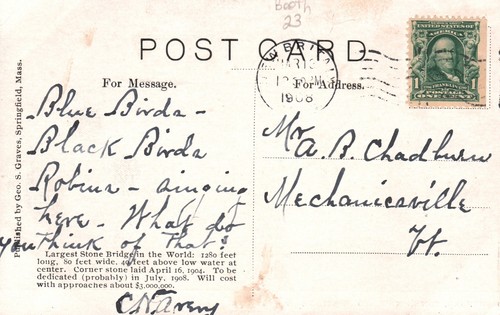 Booth
23
POST CARD
NEW BRITAIN
MAR 12
1908
For Message.
For Address.
UNITED STATES OF
FRANKLIN
1 ONE CENT 1
Published by Geo. S. Graves, Springfield, Mass.
Blue Birds -
Black Birds
Robins - singing
here - What do
you think of that?
Mr. A. B. Chadburn
Mechanicsville
Vt.
Largest Stone Bridge in the World: 1280 feet
long, 80 feet wide. 45 feet above low water at
center. Corner stone laid April 16, 1904. To be
dedicated (probably) in July, 1908. Will cost
with approaches about $3,000,000.
Avery